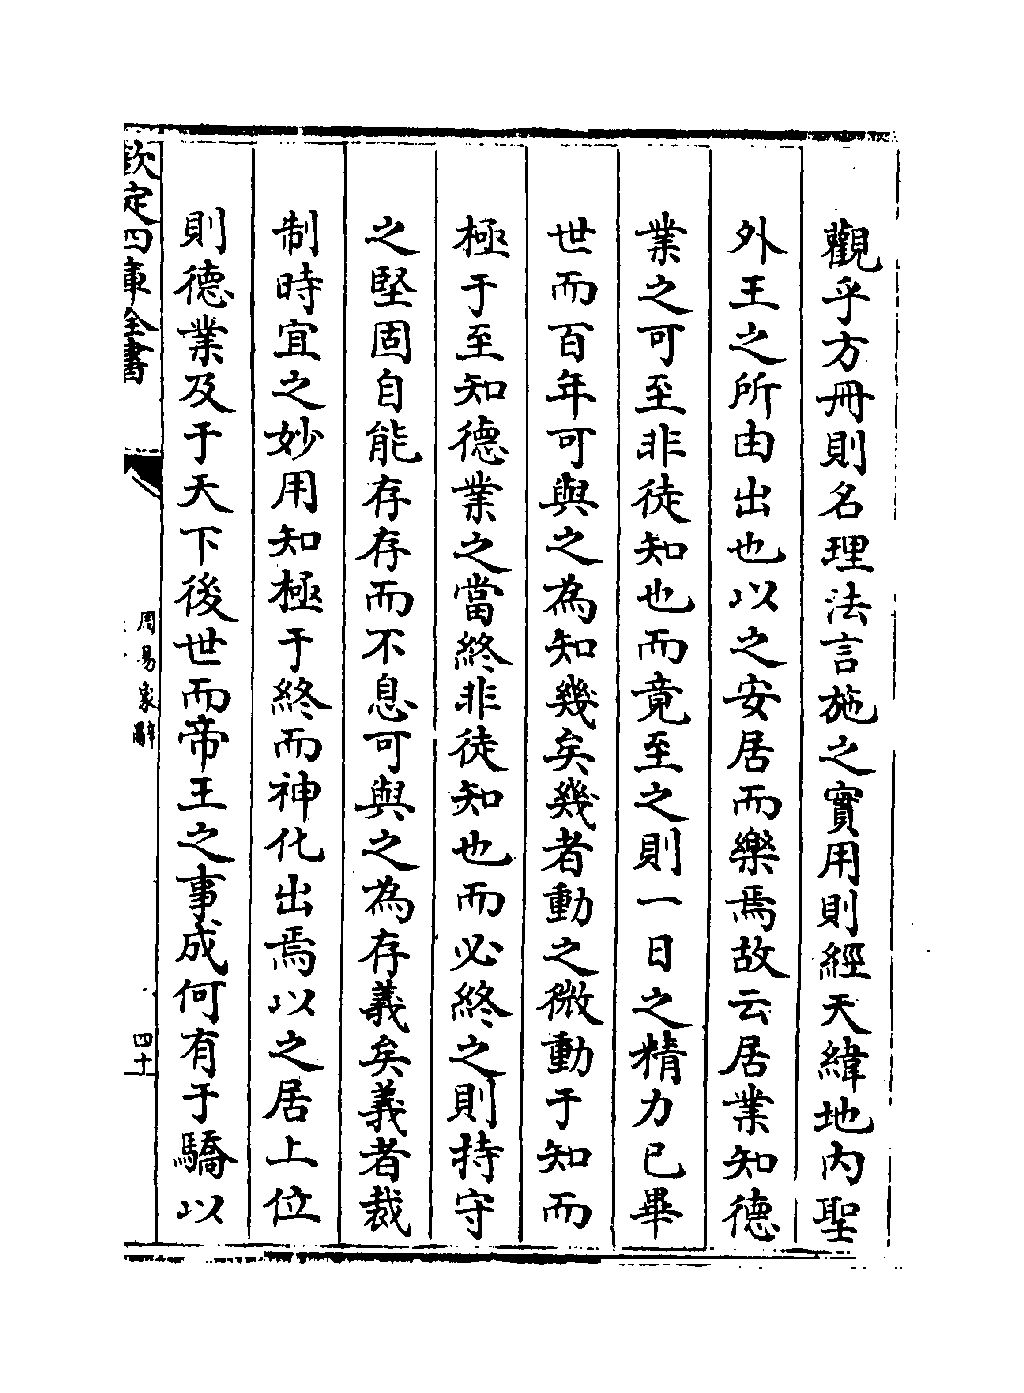 觀乎方冊則名理法言施之實用則經天緯地内聖
外王之所由出也以之安居而樂焉故云居業知德
業之可至非徒知也而竟至之則一日之精力已畢
世而百年可與之為知幾矣幾者動之微動于知而
極于至知德業之當終非徒知也而必終之則持守
之堅固自能存存而不息可與之為存義矣義者裁
制時宜之妙用知極于終而神化出焉以之居上位
則德業及于天下後世而帝王之事成何有于驕以
欽定四庫全書
周易象辭
四十